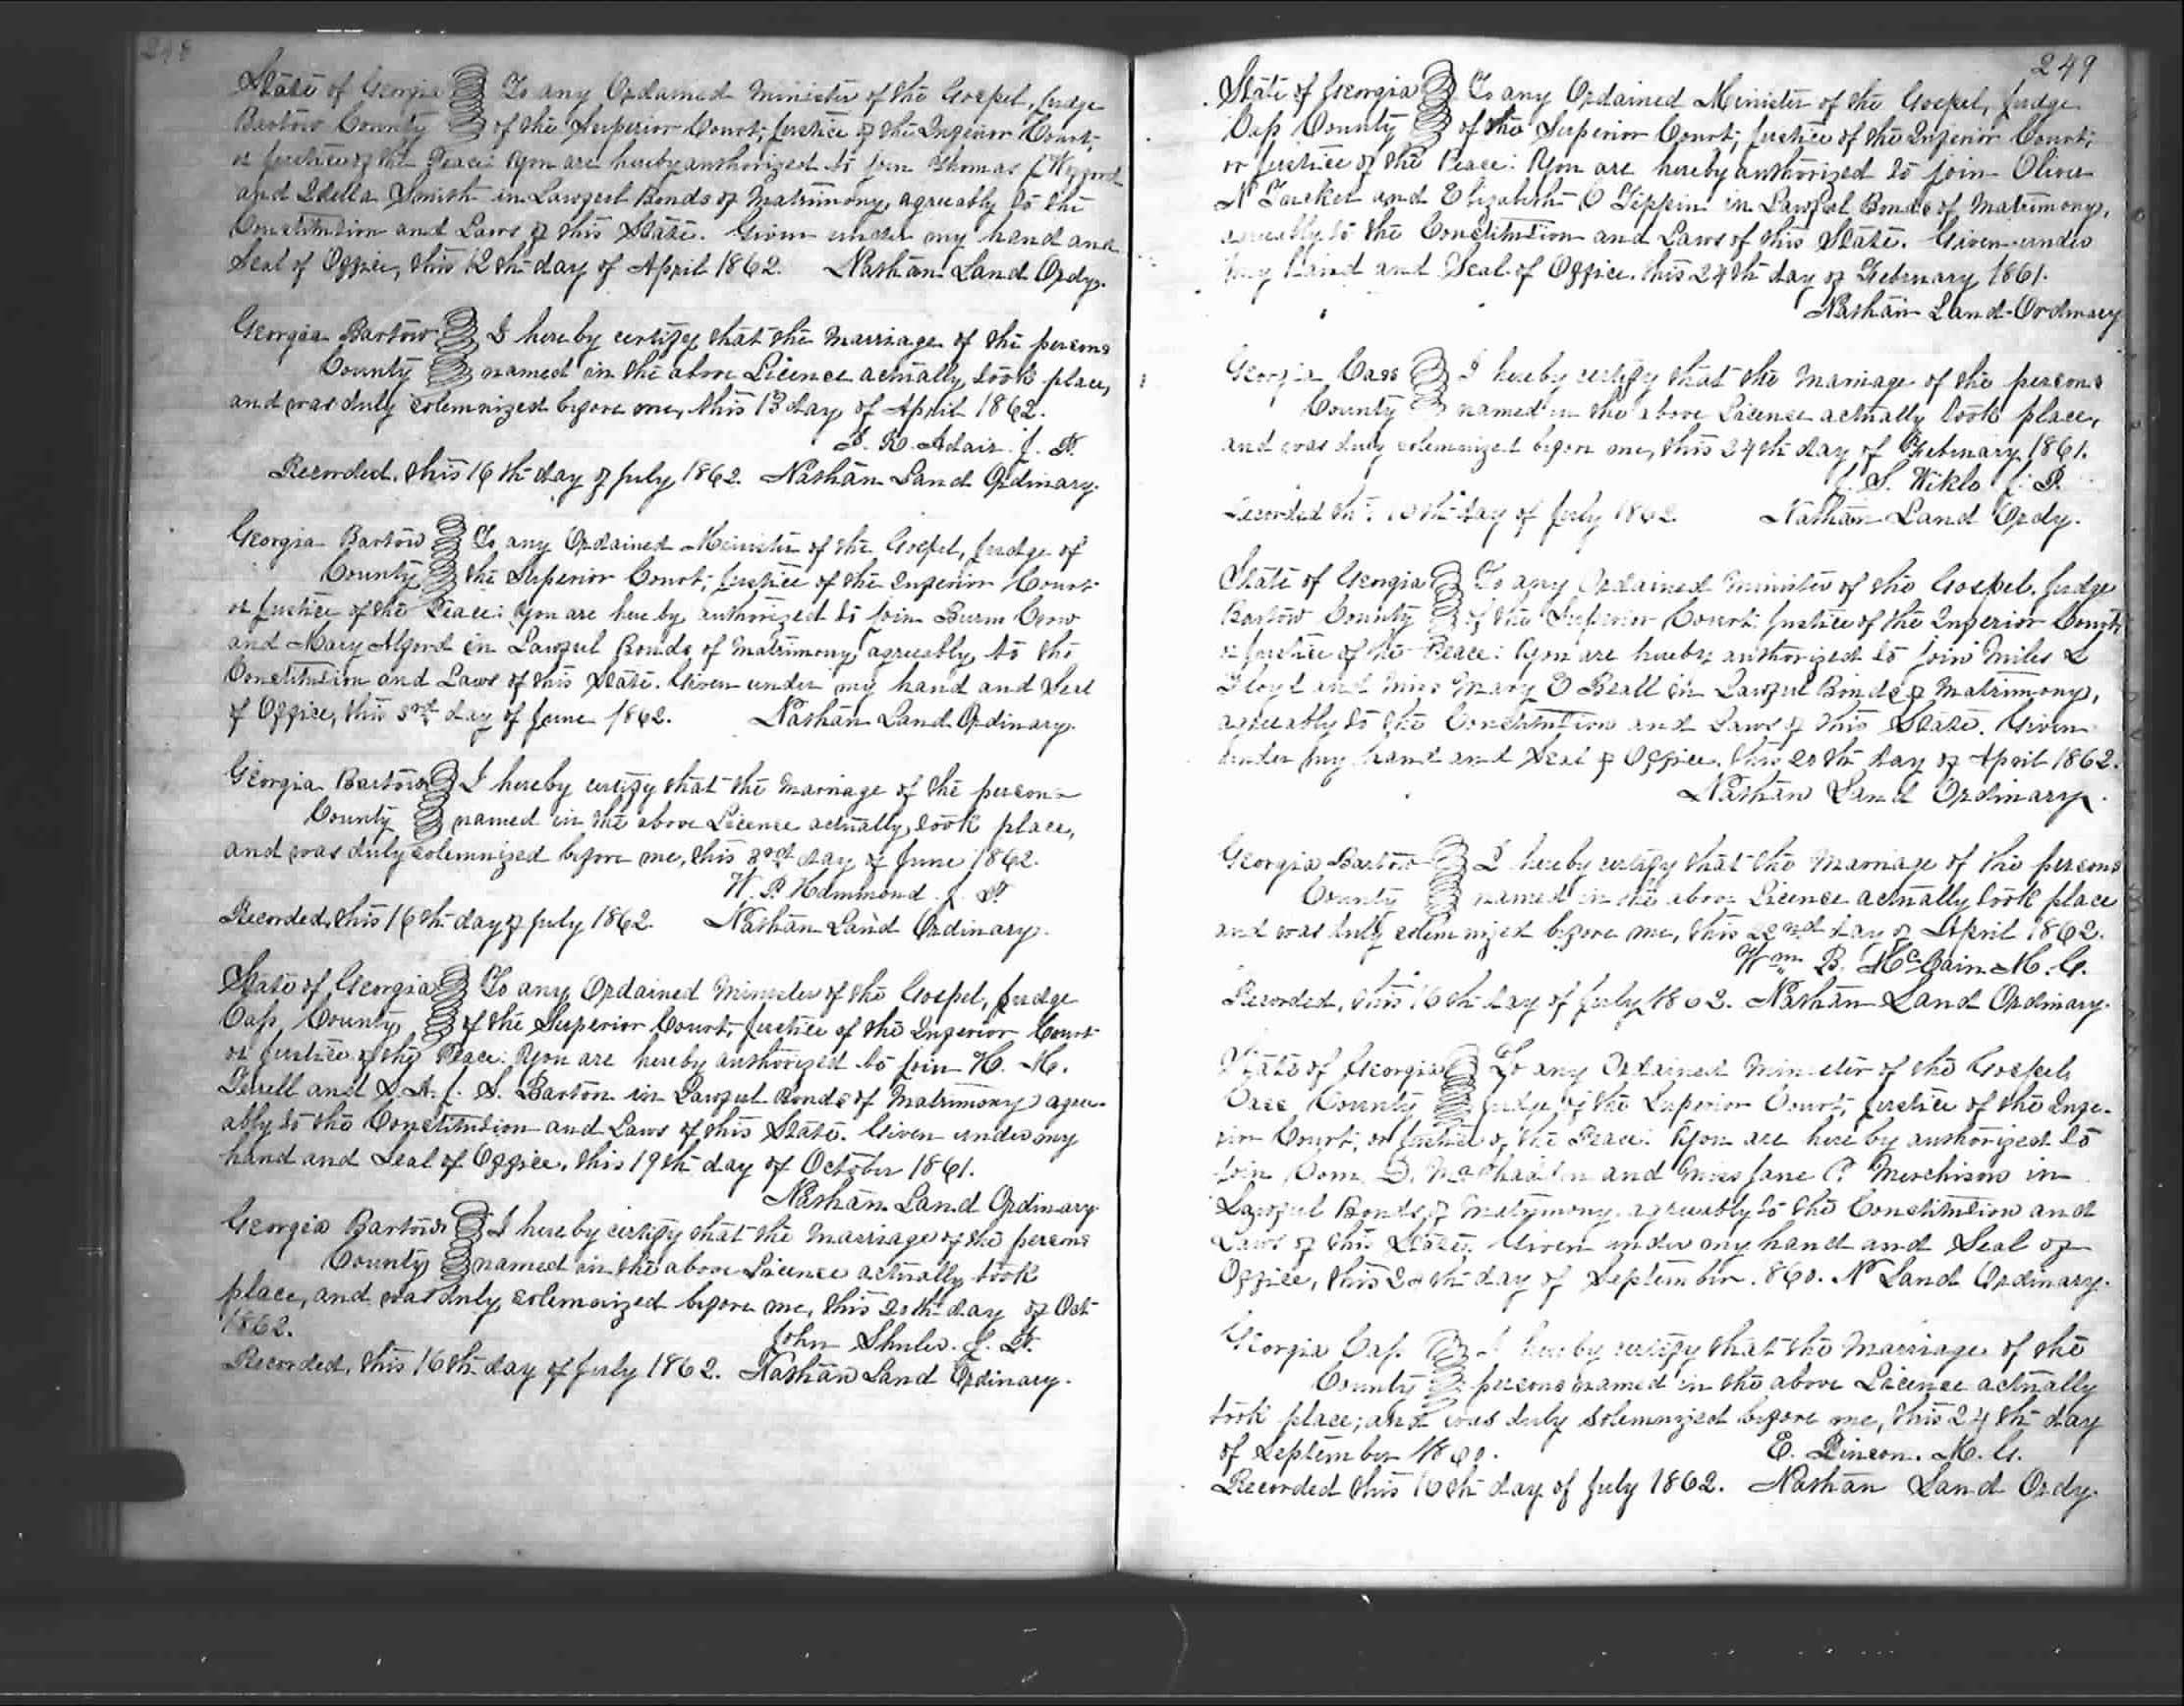 248
State of Georgia To any Ordained Minister of the Gospel, Judge
Bartow County of the Superior Court; Justice of the Inferior Court;
or Justice of the Peace: You are hereby authorized to join Thomas J
and Idella Smith in Lawful Bonds of Matrimony, agreeably to the
Constitution and Laws of this State. Given under my hand and
Seal of Office, this 12th day of April 1862. Nathan Land Ordy.
Georgia Bartow I hereby certify that the Marriage of the persons
County named in the above Licence actually took place,
and was duly solemnized before me, this 13 day of April 1862.
R. Adair J. P.
Recorded, this 16th day of July 1862. Nathan Land Ordinary.
Georgia Bartow To any Ordained Minister of the Gospel, Judge of
County the Superior Court; Justice of the Inferior Court
or Justice of the Peace: You are hereby authorized to join Burm Crow
and Mary Alford in Lawful Bonds of Matrimony, agreeably to the
Constitution and Laws of this State. Given under my hand and Seal
of Office, this 3rd day of June 1862. Nathan Land Ordinary.
Georgia Bartow I hereby certify that the Marriage of the persons
County named in the above Licence actually took place,
and was duly solemnized before me, this 3rd day of June 1862.
W. P. Hammond J. P.
Recorded, this 16th day of July 1862. Nathan Land Ordinary.
State of Georgia To any Ordained Minister of the Gospel, Judge
Cass County of the Superior Court; Justice of the Inferior Court
or Justice of the Peace: You are hereby authorized to join H. M.
Terrell and S. A. J. S. Barton in Lawful Bonds of Matrimony agree-
ably to the Constitution and Laws of this State. Given under my
hand and Seal of Office, this 19th day of October 1861.
Nathan Land Ordinary
Georgia Bartow I hereby certify that the Marriage of the persons
County named in the above Licence actually took
place, and was duly solemnized before me, this 20th day of Oct
1862.
John Shuler. J. P.
Recorded, this 16th day of July 1862. Nathan Land Ordinary.
249
State of Georgia To any Ordained Minister of the Gospel, Judge
Cass County of the Superior Court; Justice of the Inferior Court;
or Justice of the Peace: You are hereby authorized to join Oliver
N Tucker and Elizabeth C Tippin in Lawful Bonds of Matrimony,
agreeably to the Constitution and Laws of this State. Given under
my hand and Seal of Office. this 24th day of February 1861.
Nathan Land Ordinary
Georgia Cass I hereby certify that the Marriage of the persons
County named in the above Licence actually took place,
and was duly solemnized before me, this 24th day of February 1861.
J. S. Wikle J. P.
Recorded this 16th day of July 1862. Nathan Land Ordy.
State of Georgia To any Ordained Minister of the Gospel, Judge
Bartow County of the Superior Court; Justice of the Inferior Court;
or Justice of the Peace: You are hereby authorized to join Miles L
Floyd and Miss Mary E Beall in Lawful Bonds of Matrimony,
agreeably to the Constitution and Laws of this State. Given
under my hand and Seal of Office, this 20th day of April 1862.
Nathan Land Ordinary.
Georgia Bartow I hereby certify that the Marriage of the persons
County named in the above Licence actually took place
and was duly solemnized before me, this 22nd day of April 1862.
Wm. B. McCain M. G.
Recorded, this 16th day of July 1862. Nathan Land Ordinary.
State of Georgia To any Ordained Minister of the Gospel,
Cass County Judge of the Superior Court; Justice of the Infe-
rior Court; or Justice of the Peace: You are hereby authorized to
join D. and Miss Jane C. Murchison in
Lawful Bonds of Matrimony agreeably to the Constitution and
Laws of this State. Given under my hand and Seal of
Office, this 20th day of September 1860. N Land Ordinary.
Georgia Cass I hereby certify that the Marriage of the
County persons named in the above Licence actually
took place; and was duly solemnized before me, this 24th day
of September 1860. E. M. G.
Recorded this 16th day of July 1862. Nathan Land Ordy.